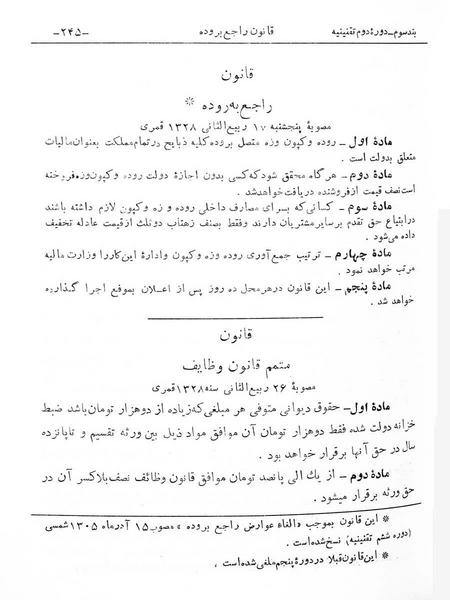 بندسوم_دورۀ دوم تقنینیه قانون راجع بروده -۲۴۵-
قانون
راجع به روده *
مصوبۀ پنجشنبه ۱۷ ربیع الثانی ۱۳۲۸ قمری
مادۀ اول_ روده و کپون وزه متصل بروده کلیه ذبایح درتمام مملکت بعنوان مالیات
متعلق بدولت است .
مادۀ دوم_ هرگاه محقق شود که کسی بدون اجازۀ دولت روده وکپون وزه فروخته
است نصف قیمت از فروشنده دریافت خواهد شد .
مادۀ سوم _ کسانی که برای مصارف داخلی روده و زه وکپون لازم داشته باشند
درابتیاع حق تقدم بر سایر مشتریان دارند وفقط بصنف زهتاب دوثلث از قیمت عادله تخفیف
داده می شود .
مادۀ چهارم_ ترتیب جمع آوری روده وزه وکپون وادارۀ این کاررا وزارت مالیه
مرتب خواهد نمود .
مادۀ پنجم_ این قانون در هر محل ده روز پس از اعلان بموقع اجرا گذارده
خواهد شد .
قانون
متمم قانون وظایف
مصوبۀ ۲۶ ربیع الثانی سنه ۱۳۲۸ قمری
مادۀ اول_ حقوق دیوانی متوفی هر مبلغی که زیاده از دوهزار تومان باشد ضبط
خزانه دولت شده فقط دوهزار تومان آن موافق مواد ذیل بین ورثه تقسیم و تاپانزده
سال در حق آنها برقرار خواهد بود .
مادۀ دوم_ از یك الی پانصد تومان موافق قانون وظائف نصف بلاکسر آن در
حق ورثه برقرار میشود .
* این قانون بموجب «الغاء عوارض راجع بروده » مصوب ۱۵ آذرماه ۱۳۰۵ شمسی
(دوره ششم تقنینیه) نسخ شده است .
* این قانون قبلا در دورۀ پنجم ملغی شده است .